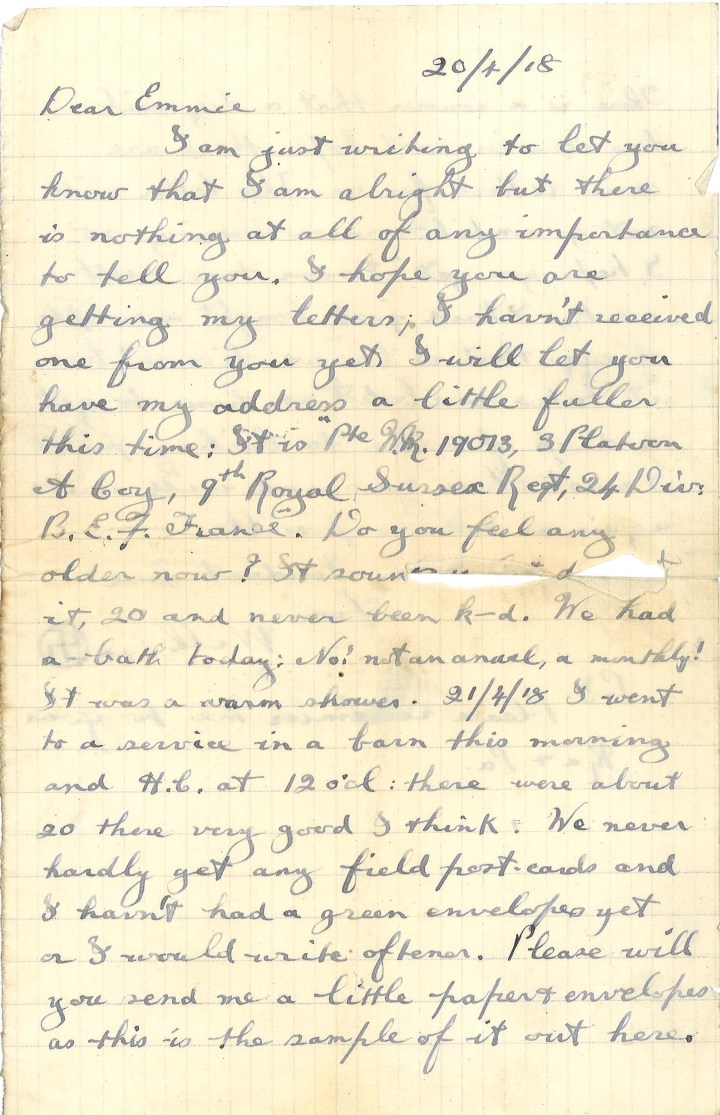 20/4/18
Dear Emmie
I am just writing to let you
know that I am alright but there
is nothing at all of any importance
to tell you. I hope you are
getting my letters; I havn't received
one from you yet. I will let you
have my address a little fuller
this time: It is "Pte W.R. 19013, 3 Platoon
A Coy, 9th Royal Sussex Regt, 24 Div:
B.E.F. France". Do you feel any
older now? It
it, 20 and never been k-d. We had
a bath today: No! not an anual, a monthly!
It was a warm shower. 21/4/18 I went
to a service in a barn this morning
and H.C. at 12 o'cl: there were about
20 there very good I think. We never
hardly get any field post-cards and
I havn't had a green envelope yet
or I would write oftener. Please will
you send me a little paper & envelopes
as this is the sample of it out here.